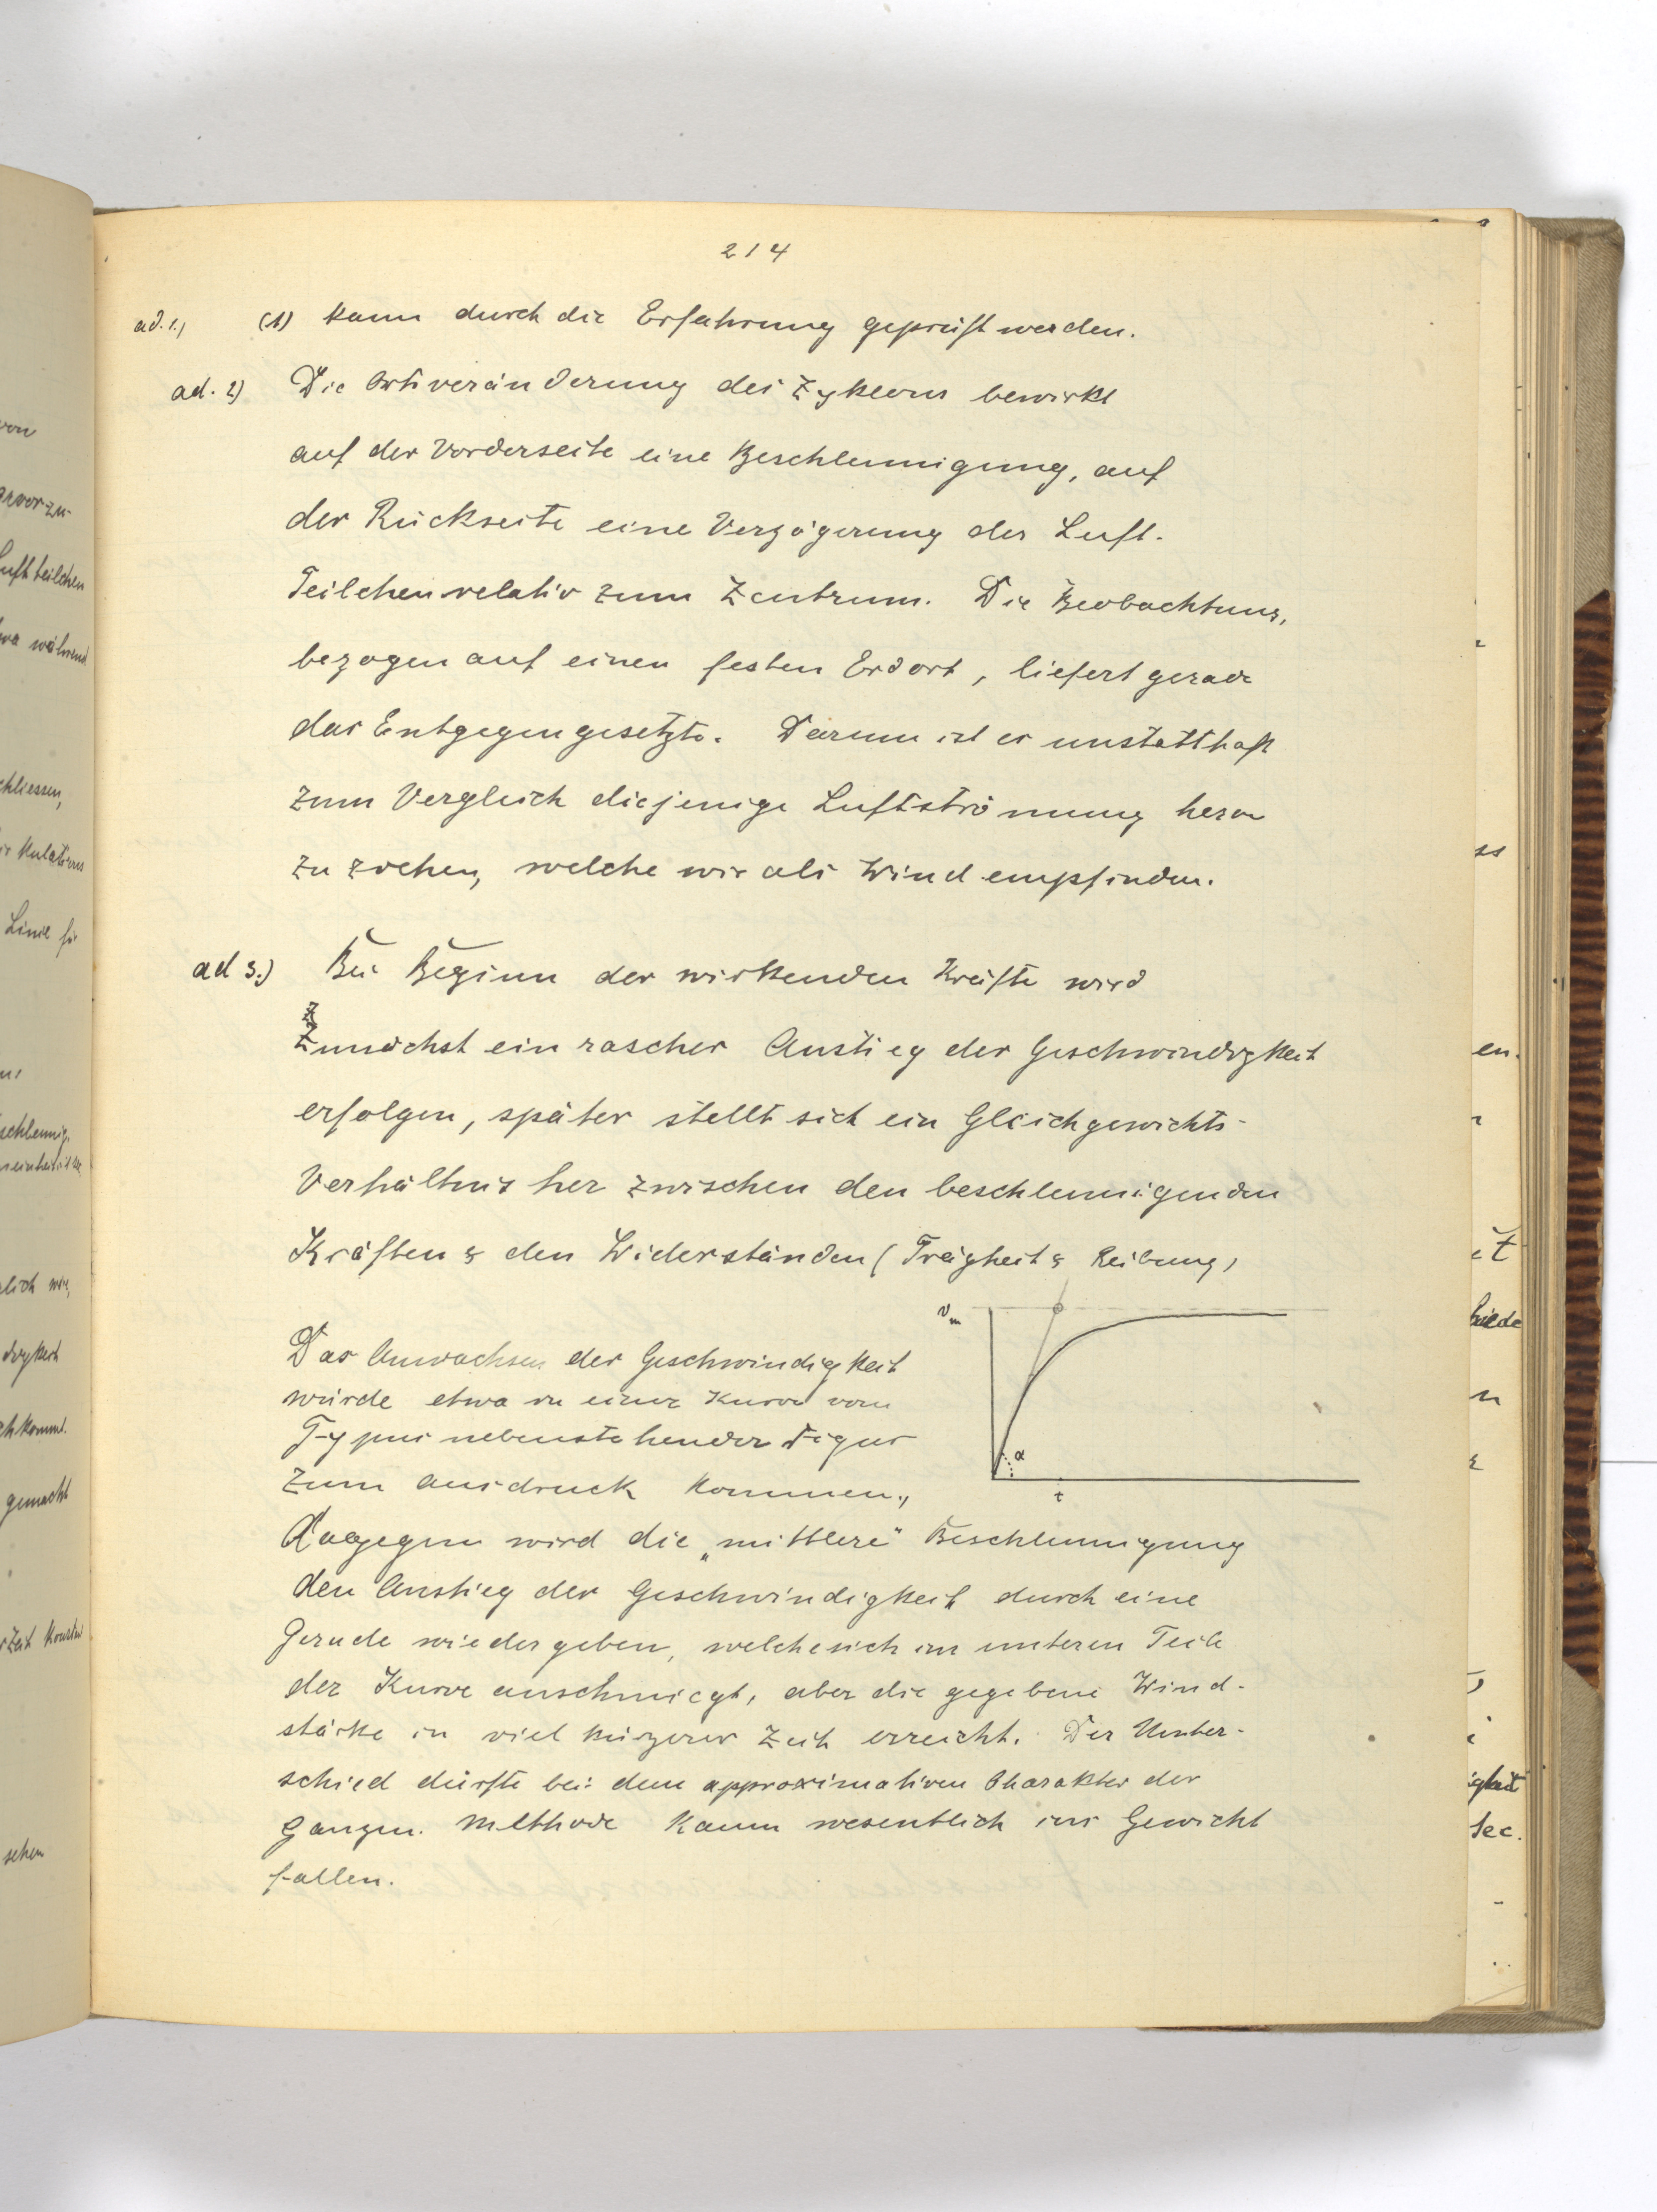 214
ad. 1.) (1) kann durch die Erfahrung geprüft werden.
ad. 2) Die Ortsveränderung des Zyklons bewirkt
auf der Vorderseite eine Beschleunigung, auf
der Rückseite eine Verzögerung der Luft-
Teilchen relativ zum Zentrum. Die Beobachtung,
bezogen auf einen festen Erdort, liefert gerade
das Entgegengesetzte. Darum ist es unstatthaft
zum Vergleich diejenige Luftströmung heran
zu ziehen, welche wir als Wind empfinden.
ad 3.) Bei Beginn der wirkenden Kräfte wird
Zunächst ein rascher Anstieg der Geschwindigkeit
erfolgen, später stellt sich ein Gleichgewichts-
Verhältnis her zwischen den beschleunigenden
Kräften & den Widerständen (Trägheit & Reibung)
vm
Das Anwachsen der Geschwindigkeit
würde etwa in einer Kurve vom
Typus nebenstehender Figur
zum Ausdruck kommen.,
α
t
Dagegen wird die „mittlere" Beschleunigung
den Anstieg der Geschwindigkeit durch eine
Gerade wiedergeben, welche sich im unteren Teile
der Kurve anschmiegt, aber die gegebene Wind-
stärke in viel kürzerer Zeit erreicht. Der Unter-
schied dürfte bei dem approximativen Charakter der
ganzen Methode kaum wesentlich ins Gewicht
fallen.
von
Luftteilchen
während
schliessen,
Linie für
gemacht
sehen
en.
igkeit
Sec.